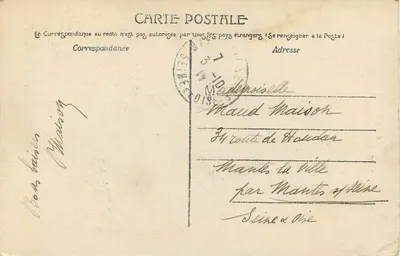 CARTE POSTALE
La Correspondance au recto n'est pas autorisée par tous les pays étrangers (Se renseigner à la Poste)
Correspondance
Adresse
Bons baisers
Maison
Mademoiselle
Maud Maison
34 route de Houdan
Mantes la Ville
par Mantes s/Seine
Seine & Oise